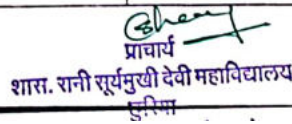 प्राचार्य
शास. रानी सूर्यमुखी देवी महाविद्यालय
छुरिया